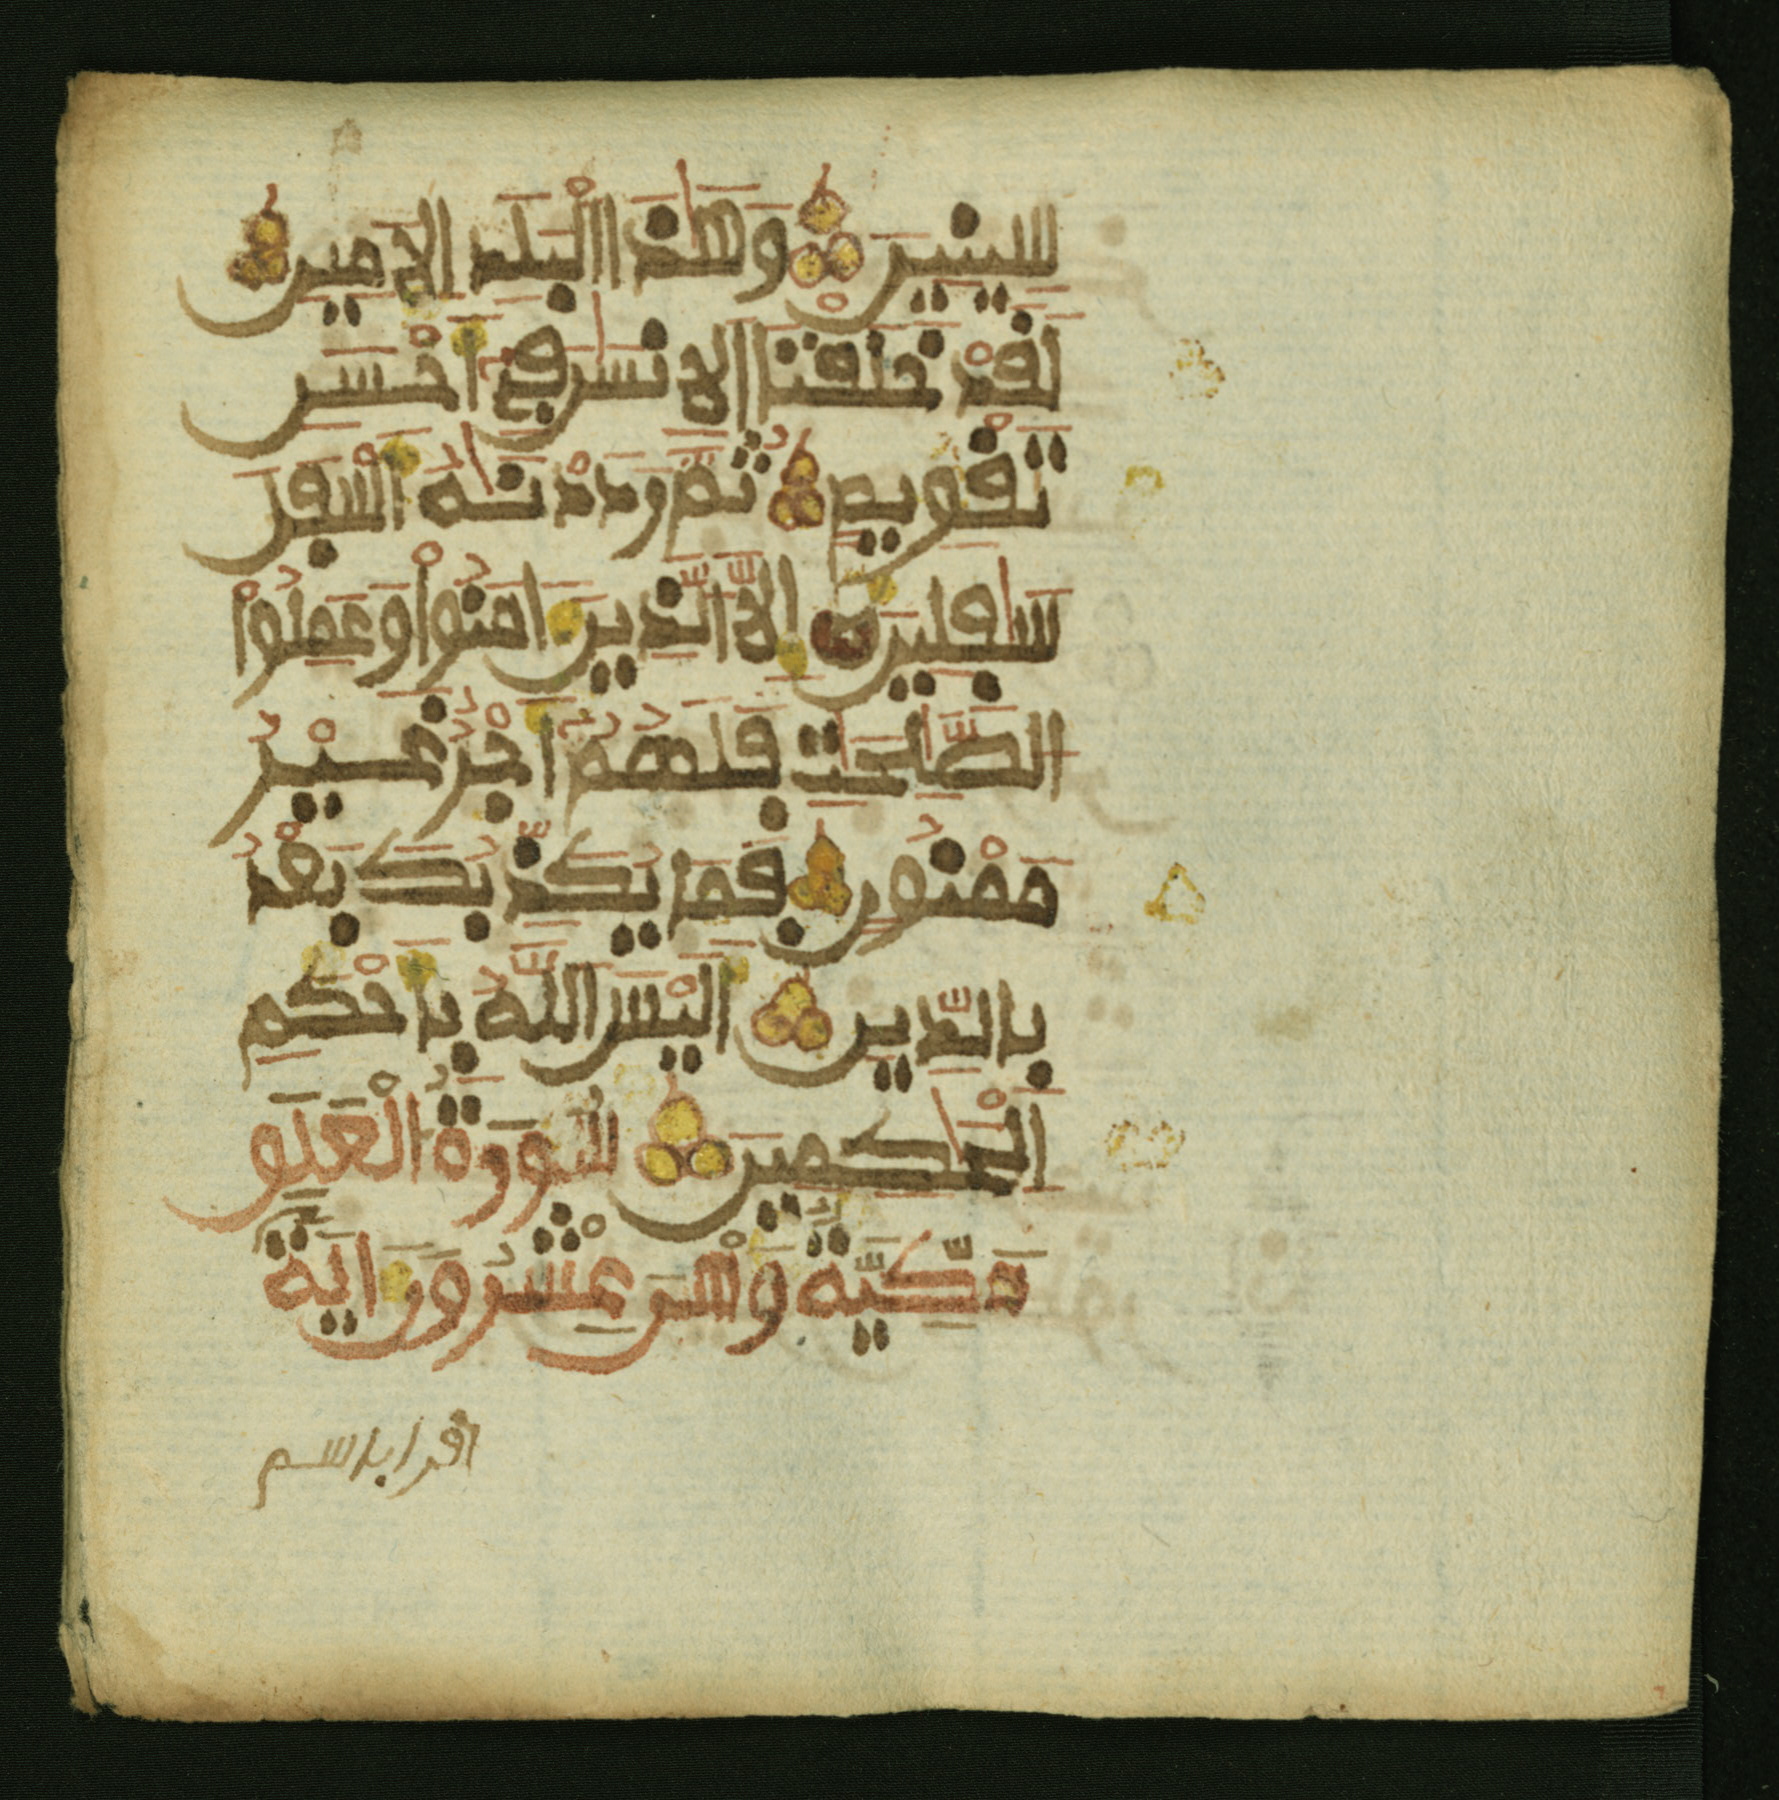 سِينِينَ وَهَٰذَا االْبَلَدِ الَامِينِ
لَقَدْ خَلَقْنَا االِانسَٰنَ فِے أَحْسَنِ
تَقْوِيمٍ ثُمَّ رَدَدْنَٰهُ أَسْفَلَ
سَٰفِلِينَ إِلَّا اَلَّذِينَ ءَامَنُواْ وَعَمِلُواْ
الصَّٰلِحَٰتِ فَلَهُمُ أَجْرٌ غَيْرُ
مَمْنُونٍ فَمَا يُكَذِّبُكَ بَعْدُ
بِالدِّينِ أَلَيْسَ اَللَّهُ بِأَحْكَمِ
اِلْحَٰكِمِينَ سُورَةُ الْعَلَقِ
مَكِّيَّةٌ وَهْىَ عِشْرُونَ ءَايَةً
اقرا باسم